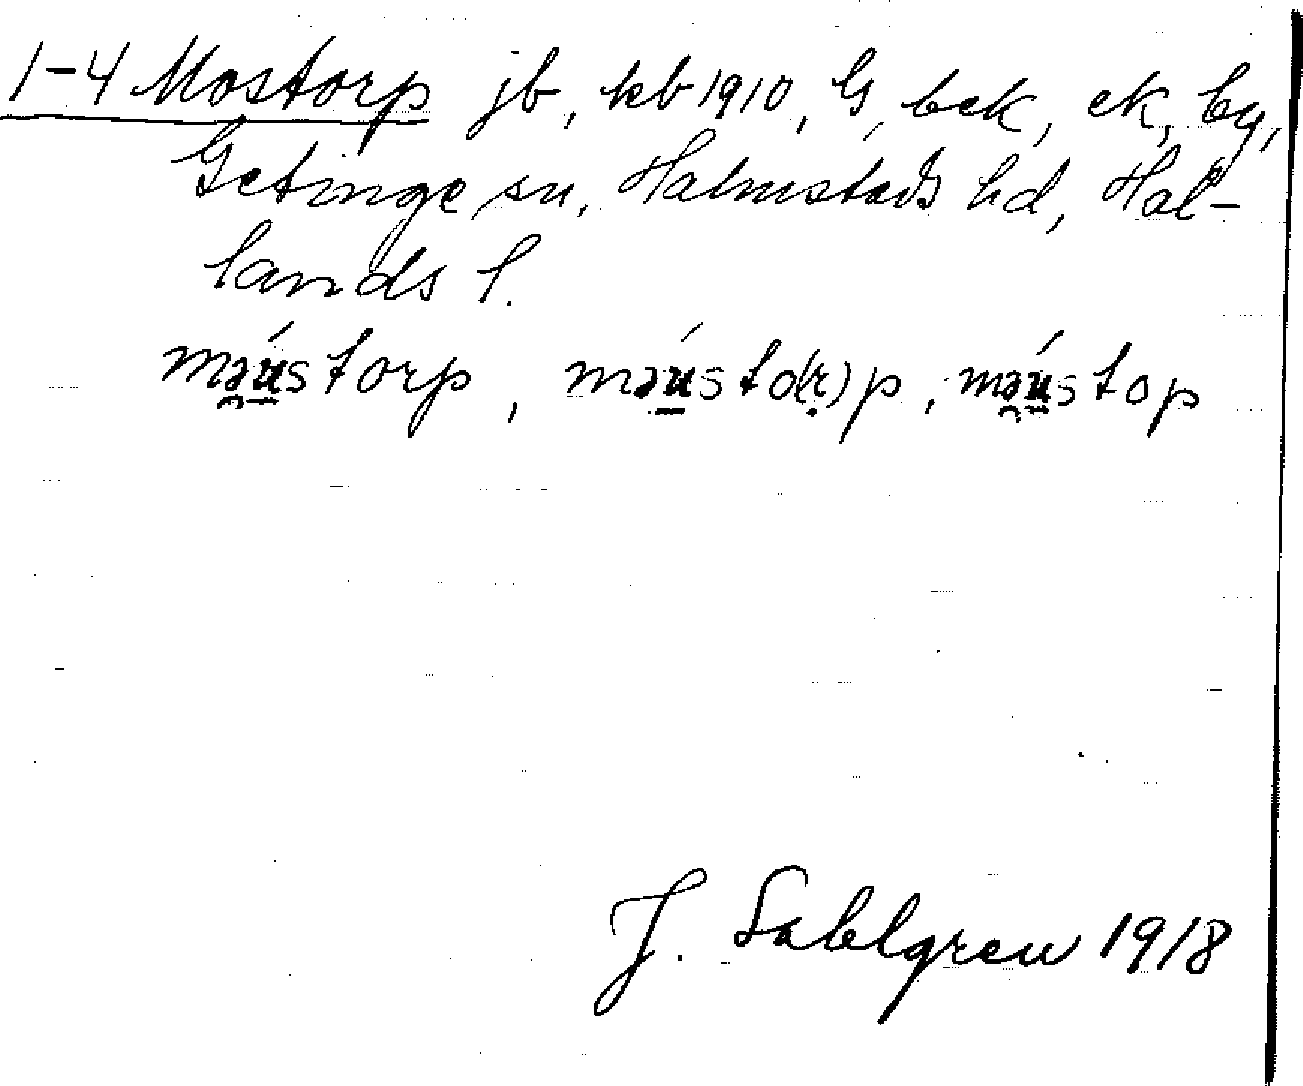 1-4 Mostorp jb, kb 1910, G, bek, ek, by,
Getinge sn, Halmstads hd, Hal-
lands l.
məústorp, məústo(r)p, məústop
J. Sahlgren 1918